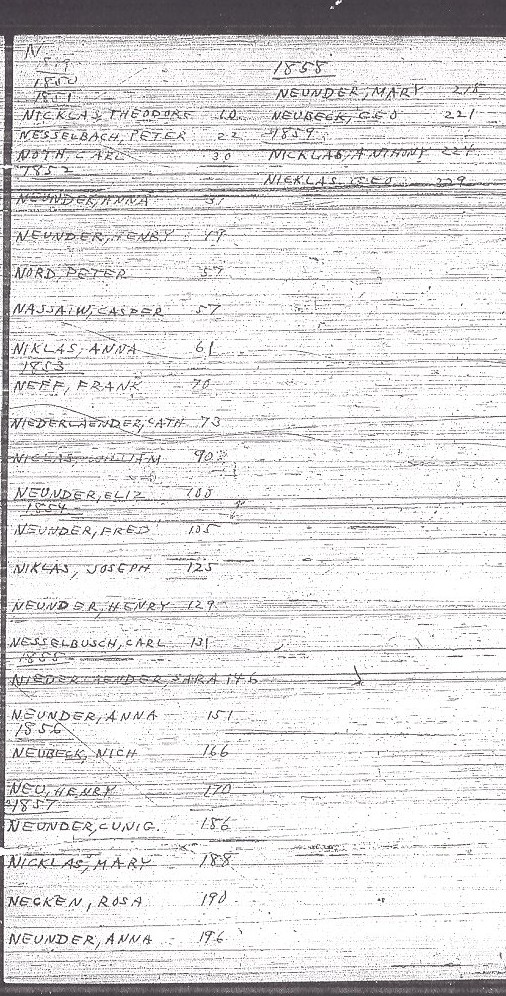 N
1850
1851
NICKLAS, THEODORE 10
NESSELBACH, PETER 22
NOTH, CARL 30
1852
NEUNDER, ANNA
NEUNDER, HENRY 49
NORD, PETER 57
NASSAIW, CASPER 57
NIKLAS, ANNA 61
1853
NEFF, FRANK 70
NIEDERLAENDER, CATH 73
NICLAS, WILLIAM 90
NEUNDER, ELIZ 100
1854
NEUNDER, FRED 105
NIKLAS, JOSEPH 125
NEUNDER, HENRY 129
NESSELBUSCH, CARL 131
1855
NIEDERLAENDER, SARA 146
NEUNDER, ANNA 151
1856
NEUBECK, NICH 166
NEU, HENRY 170
1857
NEUNDER, CUNIG. 186
NICKLAS, MARY 188
NECKEN, ROSA 190
NEUNDER, ANNA 196
1858
NEUNDER, MARY 218
NEUBECK, GEO 221
1859
NICKLAS, ANTHONY 224
NICKLAS, GEO 229